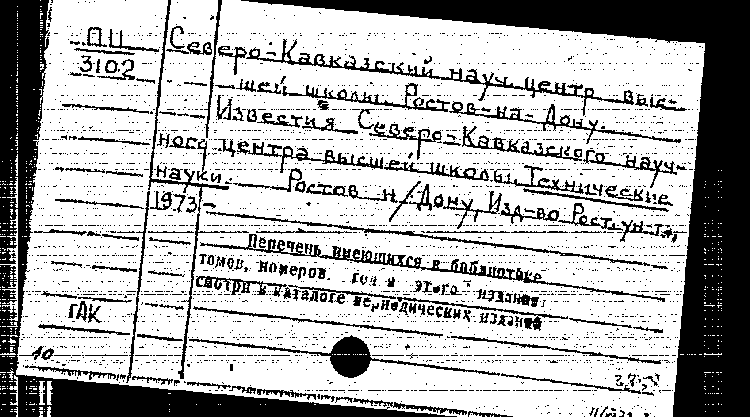 П.Ц Северо-Кавказский науч. центр выс-
3102 шей школы. Ростов-на-Дону.
Известия Северо-Кавказского науч-
ного центра высшей школы. Технические
науки. Ростов н/Дону, Изд-во Рост. ун-та,
1973-
Перечень имеющихся в библиотеке
томов, номеров, этого издания
смотри в каталоге периодических изданий
ГАК
10